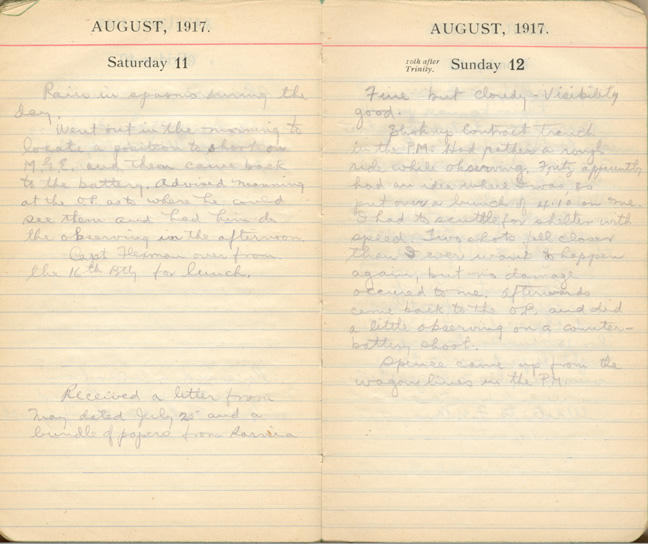 AUGUST, 1917.
Saturday 11
Rain in spasms during the
day.
Went out in the morning to
locate a position to shoot on
M.G.E. and then came back
to the battery. Advised Manning
at the O.P. as to where he could
see them and had him do
the observing in the afternoon.
Capt over from
the 16th Bty for lunch.
Received a letter from
May dated July 25 and a
bundle of papers from Sarnia
AUGUST, 1917.
10th after
Trinity. Sunday 12
Fine but cloudy - Visibility
good.
Shot up Contract trench
in the P.M. Had rather a rough
ride while observing. Fritz apparently
had an idea where I was, so
put over a bunch of 4.1's on me.
I had to scuttle for shelter with
speed. Two shots fell closer
than I ever want to happen
again, but no damage
occured to me. Afterwards
came back to the O.P. and did
a little observing on a counter-
battery shoot.
Spence came up from the
wagon lines in the P.M.